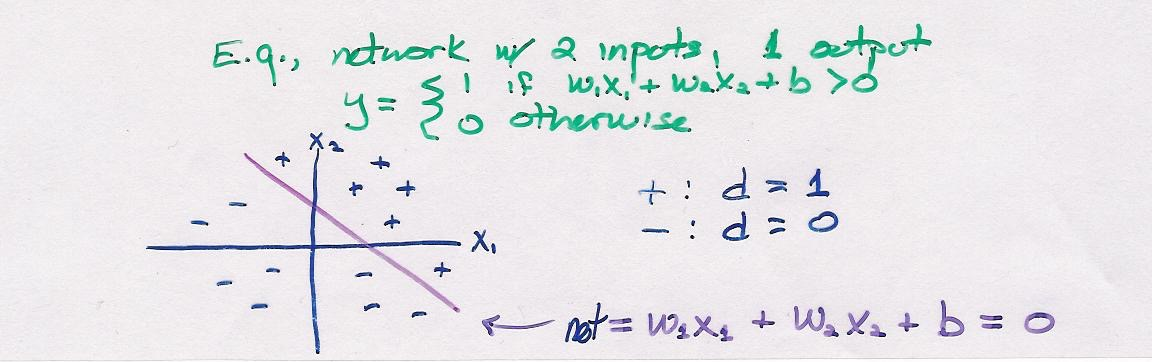 E.g., network w/ 2 inputs, 1 output
y = { 1 if w₁x₁ + w₂x₂ + b > 0
0 otherwise
x₂
+ +
+ +
-
- +
x₁
- - +
-
- - -
+ : d = 1
- : d = 0
← net = w₁x₁ + w₂x₂ + b = 0